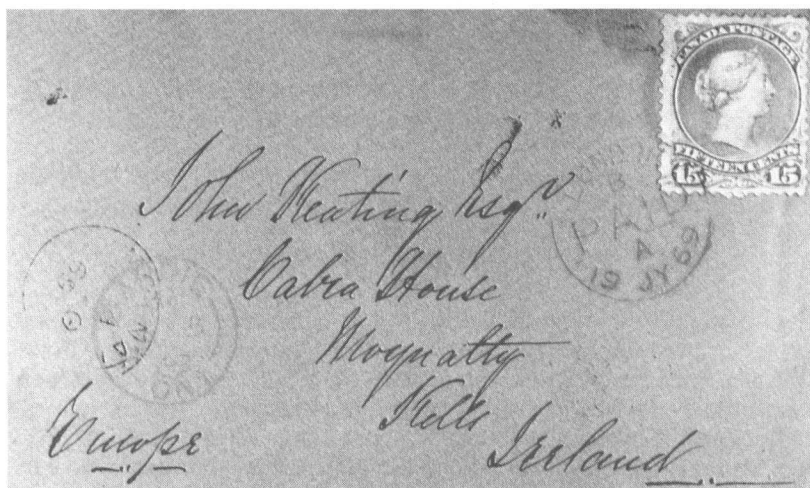 CANADA POSTAGE
FIFTEEN CENTS
15 15
LONDON
PAID
A
19 JY 69
John Keating Esqr.
Cabra House
Moynalty
Kells
Ireland
Europe